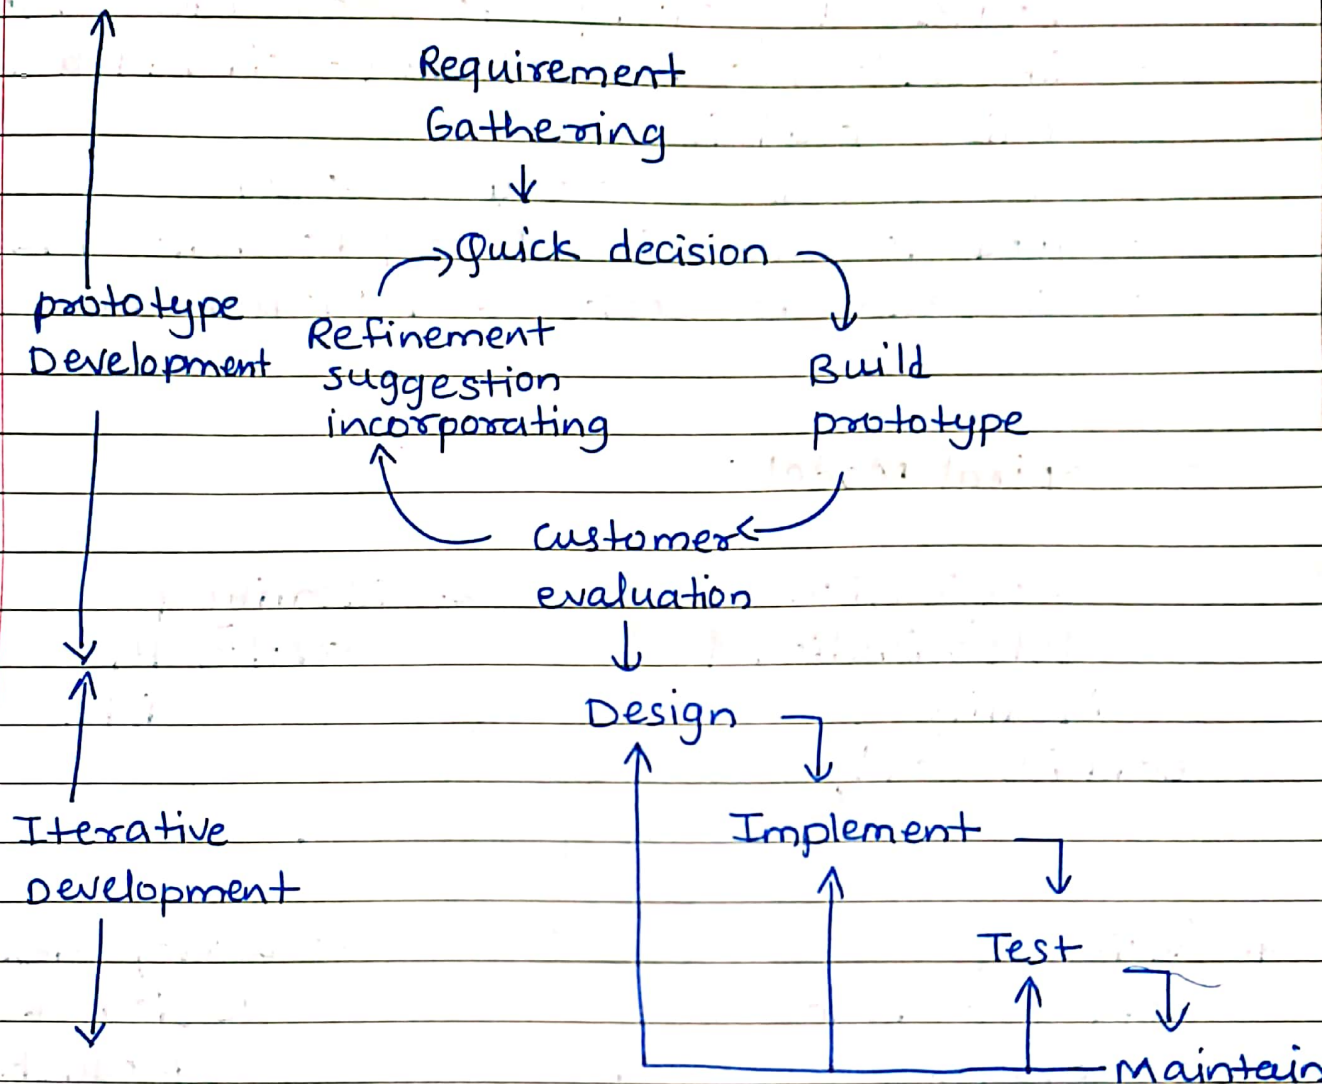 Requirement
Gathering
Quick decision
prototype
Development
Refinement
suggestion
incorporating
Build
prototype
customer
evaluation
Design
Iterative
Development
Implement
Test
Maintain